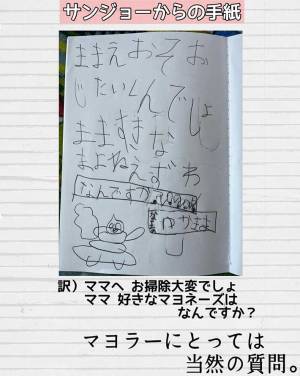 サンジョーからの手紙
ままえおそお
じたいくんでしょ
まますきな
まよねえずわ
なんですか
訳）ママへ お掃除大変でしょ
ママ 好きなマヨネーズは
なんですか？
マヨラーにとっては
当然の質問。